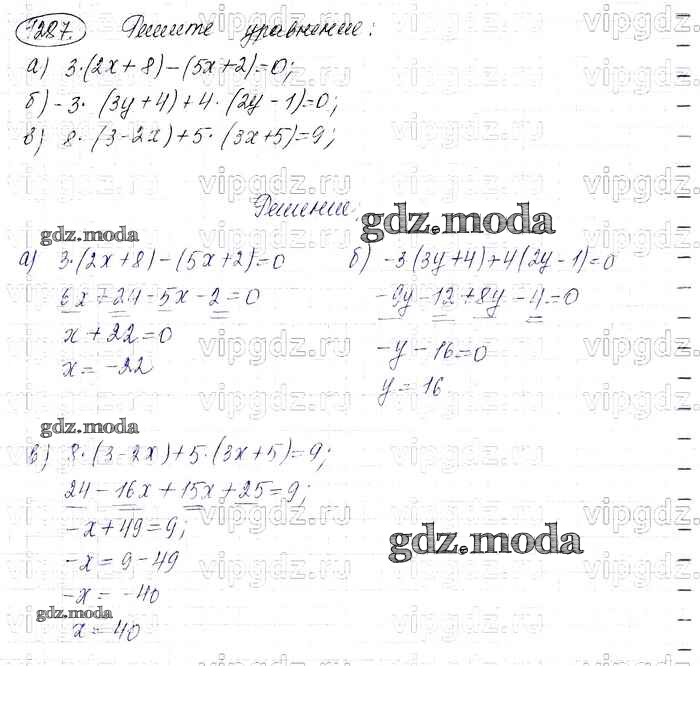 1287. Решите уравнение:
а) 3·(2x+8)-(5x+2)=0;
б) -3·(3y+4)+4·(2y-1)=0;
в) 8·(3-2x)+5·(3x+5)=9;
Решение:
gdz.moda
gdz.moda
а) 3·(2x+8)-(5x+2)=0
6x+24-5x-2=0
x+22=0
x=-22
б) -3(3y+4)+4(2y-1)=0
-9y-12+8y-4=0
-y-16=0
y=16
gdz.moda
в) 8·(3-2x)+5·(3x+5)=9;
24-16x+15x+25=9;
-x+49=9;
-x=9-49
-x=-40
x=40
gdz.moda
gdz.moda
vipgdz.ru